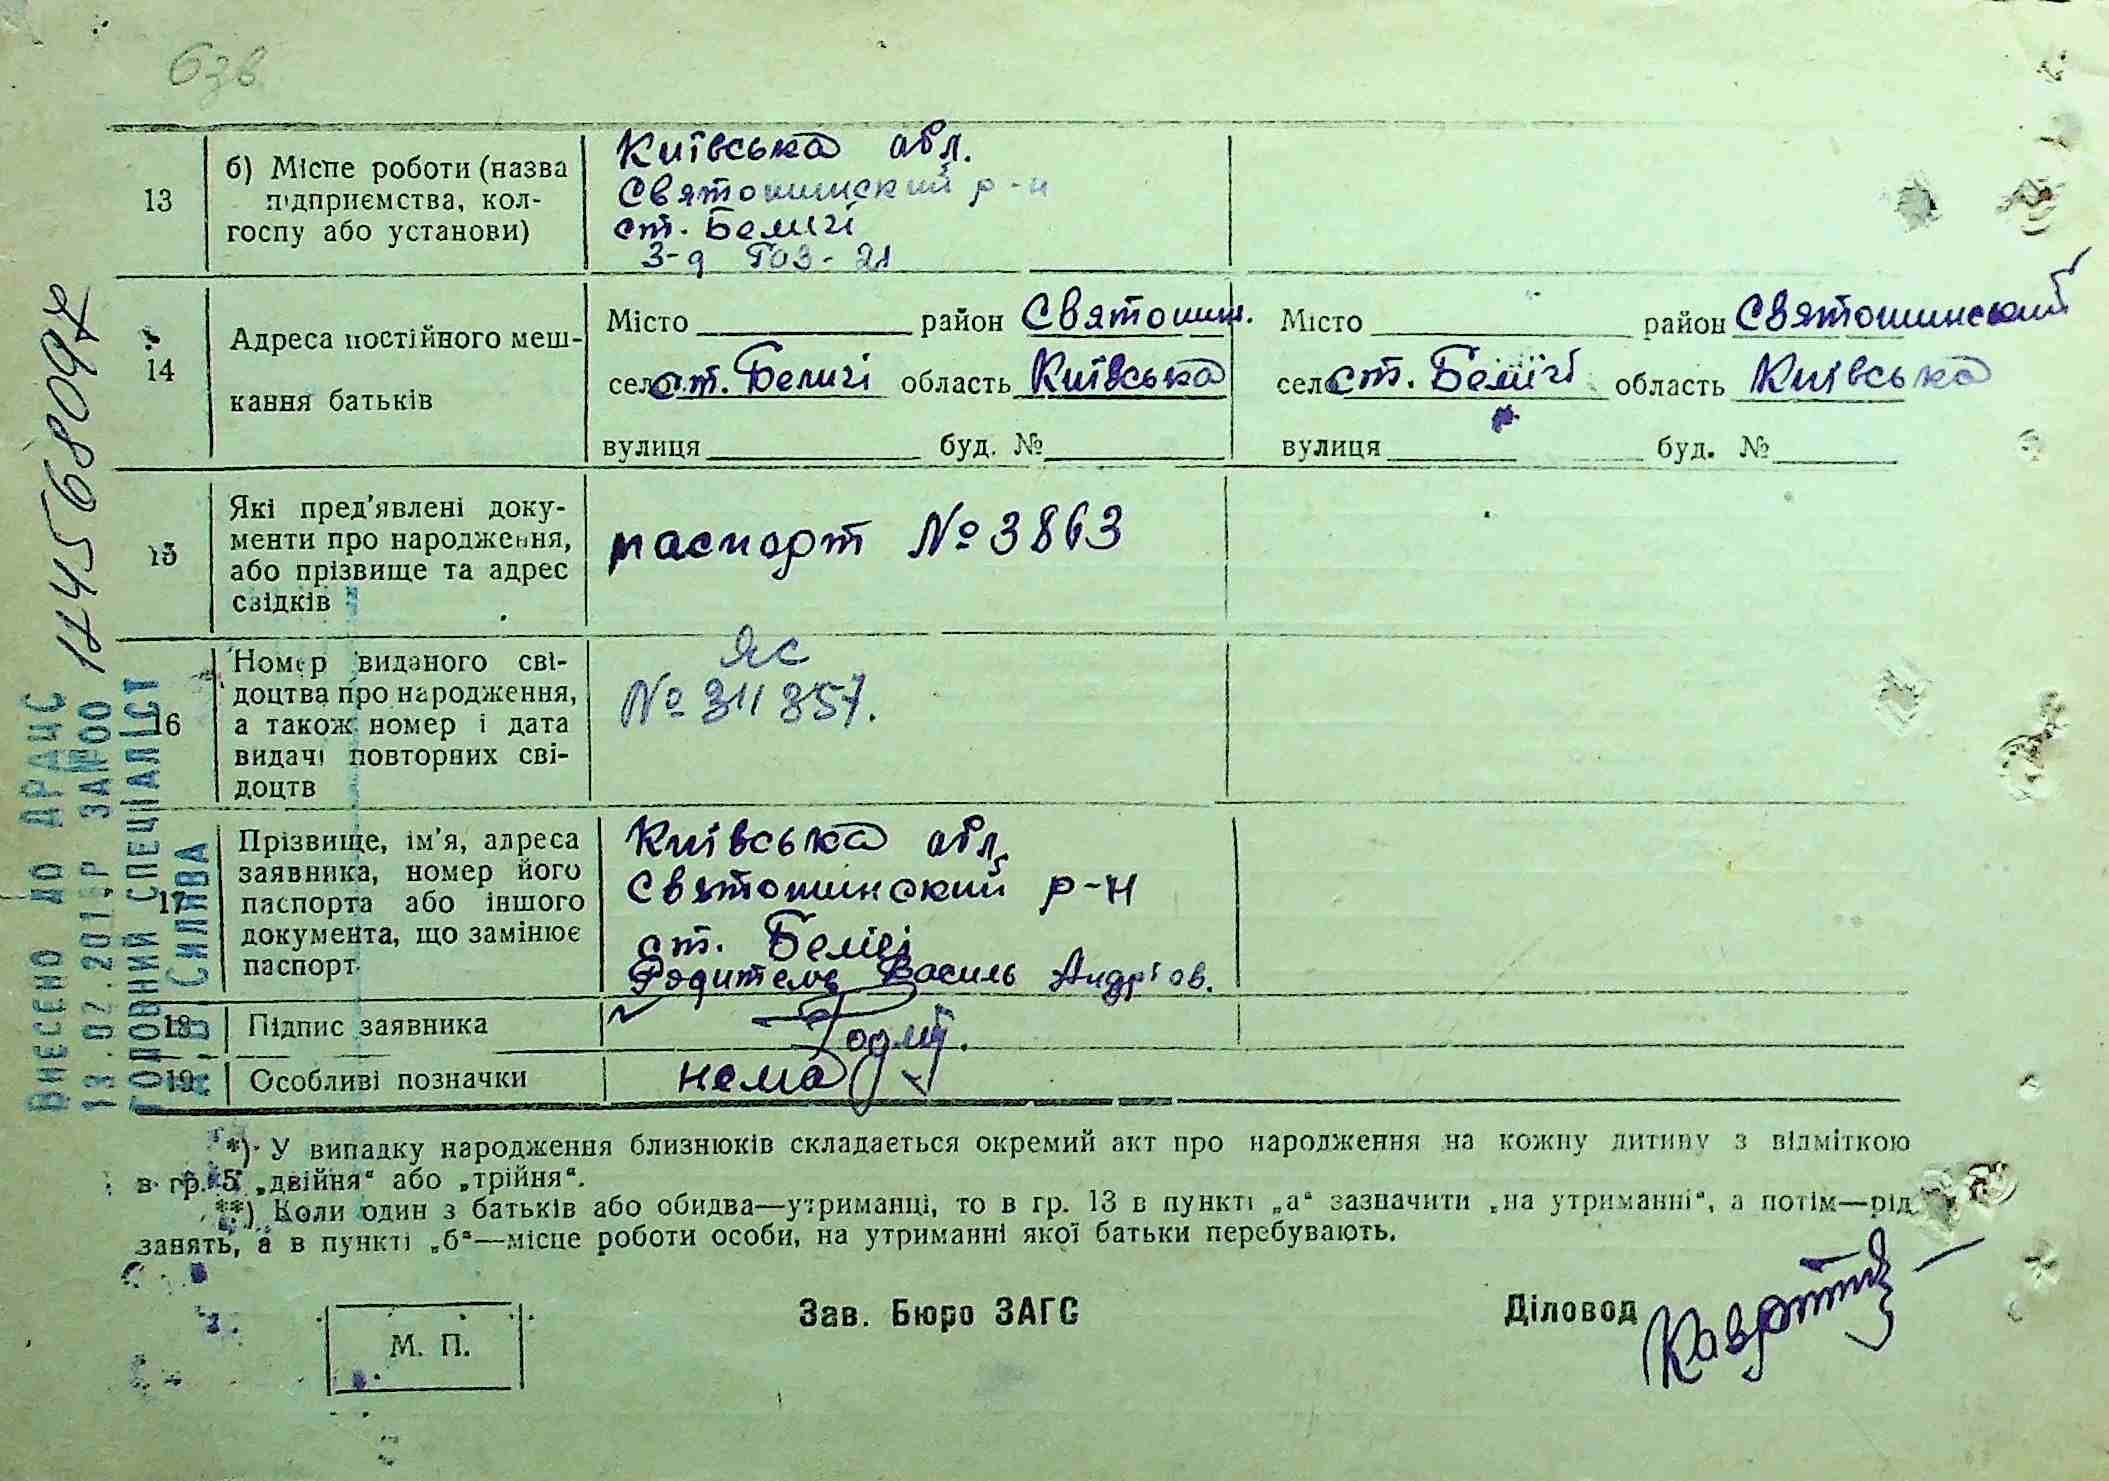 6зв.
13
б) Місце роботи (назва
підприємства, кол-
госпу або установи)
Київська обл.
Святошинский р-н
ст. Беличі
З-д ГОЗ-21
14
Адреса постійного меш-
кання батьків
Місто район Святошин.
село ст. Беличі область Київська
вулиця буд. №
Місто район Святошинский
село ст. Беличі область Київська
вулиця буд. №
15
Які пред'явлені доку-
менти про народження,
або прізвище та адрес
свідків
паспорт № 3863
16
Номер виданого сві-
доцтва про народження,
а також номер і дата
видачі повторних сві-
доцтв
ЯС
№ 311857.
17
Прізвище, ім'я, адреса
заявника, номер його
паспорта або іншого
документа, що замінює
паспорт
Київська обл.
Святошинский р-н
ст. Беличі
Василь Андріов.
18
Підпис заявника
19
Особливі позначки
нема
*) У випадку народження близнюків складається окремий акт про народження на кожну дитину з відміткою
в гр. 5 „двійня“ або „трійня“.
**) Коли один з батьків або обидва—утриманці, то в гр. 13 в пункті „а“ зазначити „на утриманні“, а потім—рід
занять, а в пункті „б“—місце роботи особи, на утриманні якої батьки перебувають.
М. П.
Зав. Бюро ЗАГС
Діловод
ВНЕСЕНО ДО ДРАЦС
13.02.201 Р ЗА №00
ГОЛОВНИЙ СПЕЦІАЛІСТ
СИЛЯВА